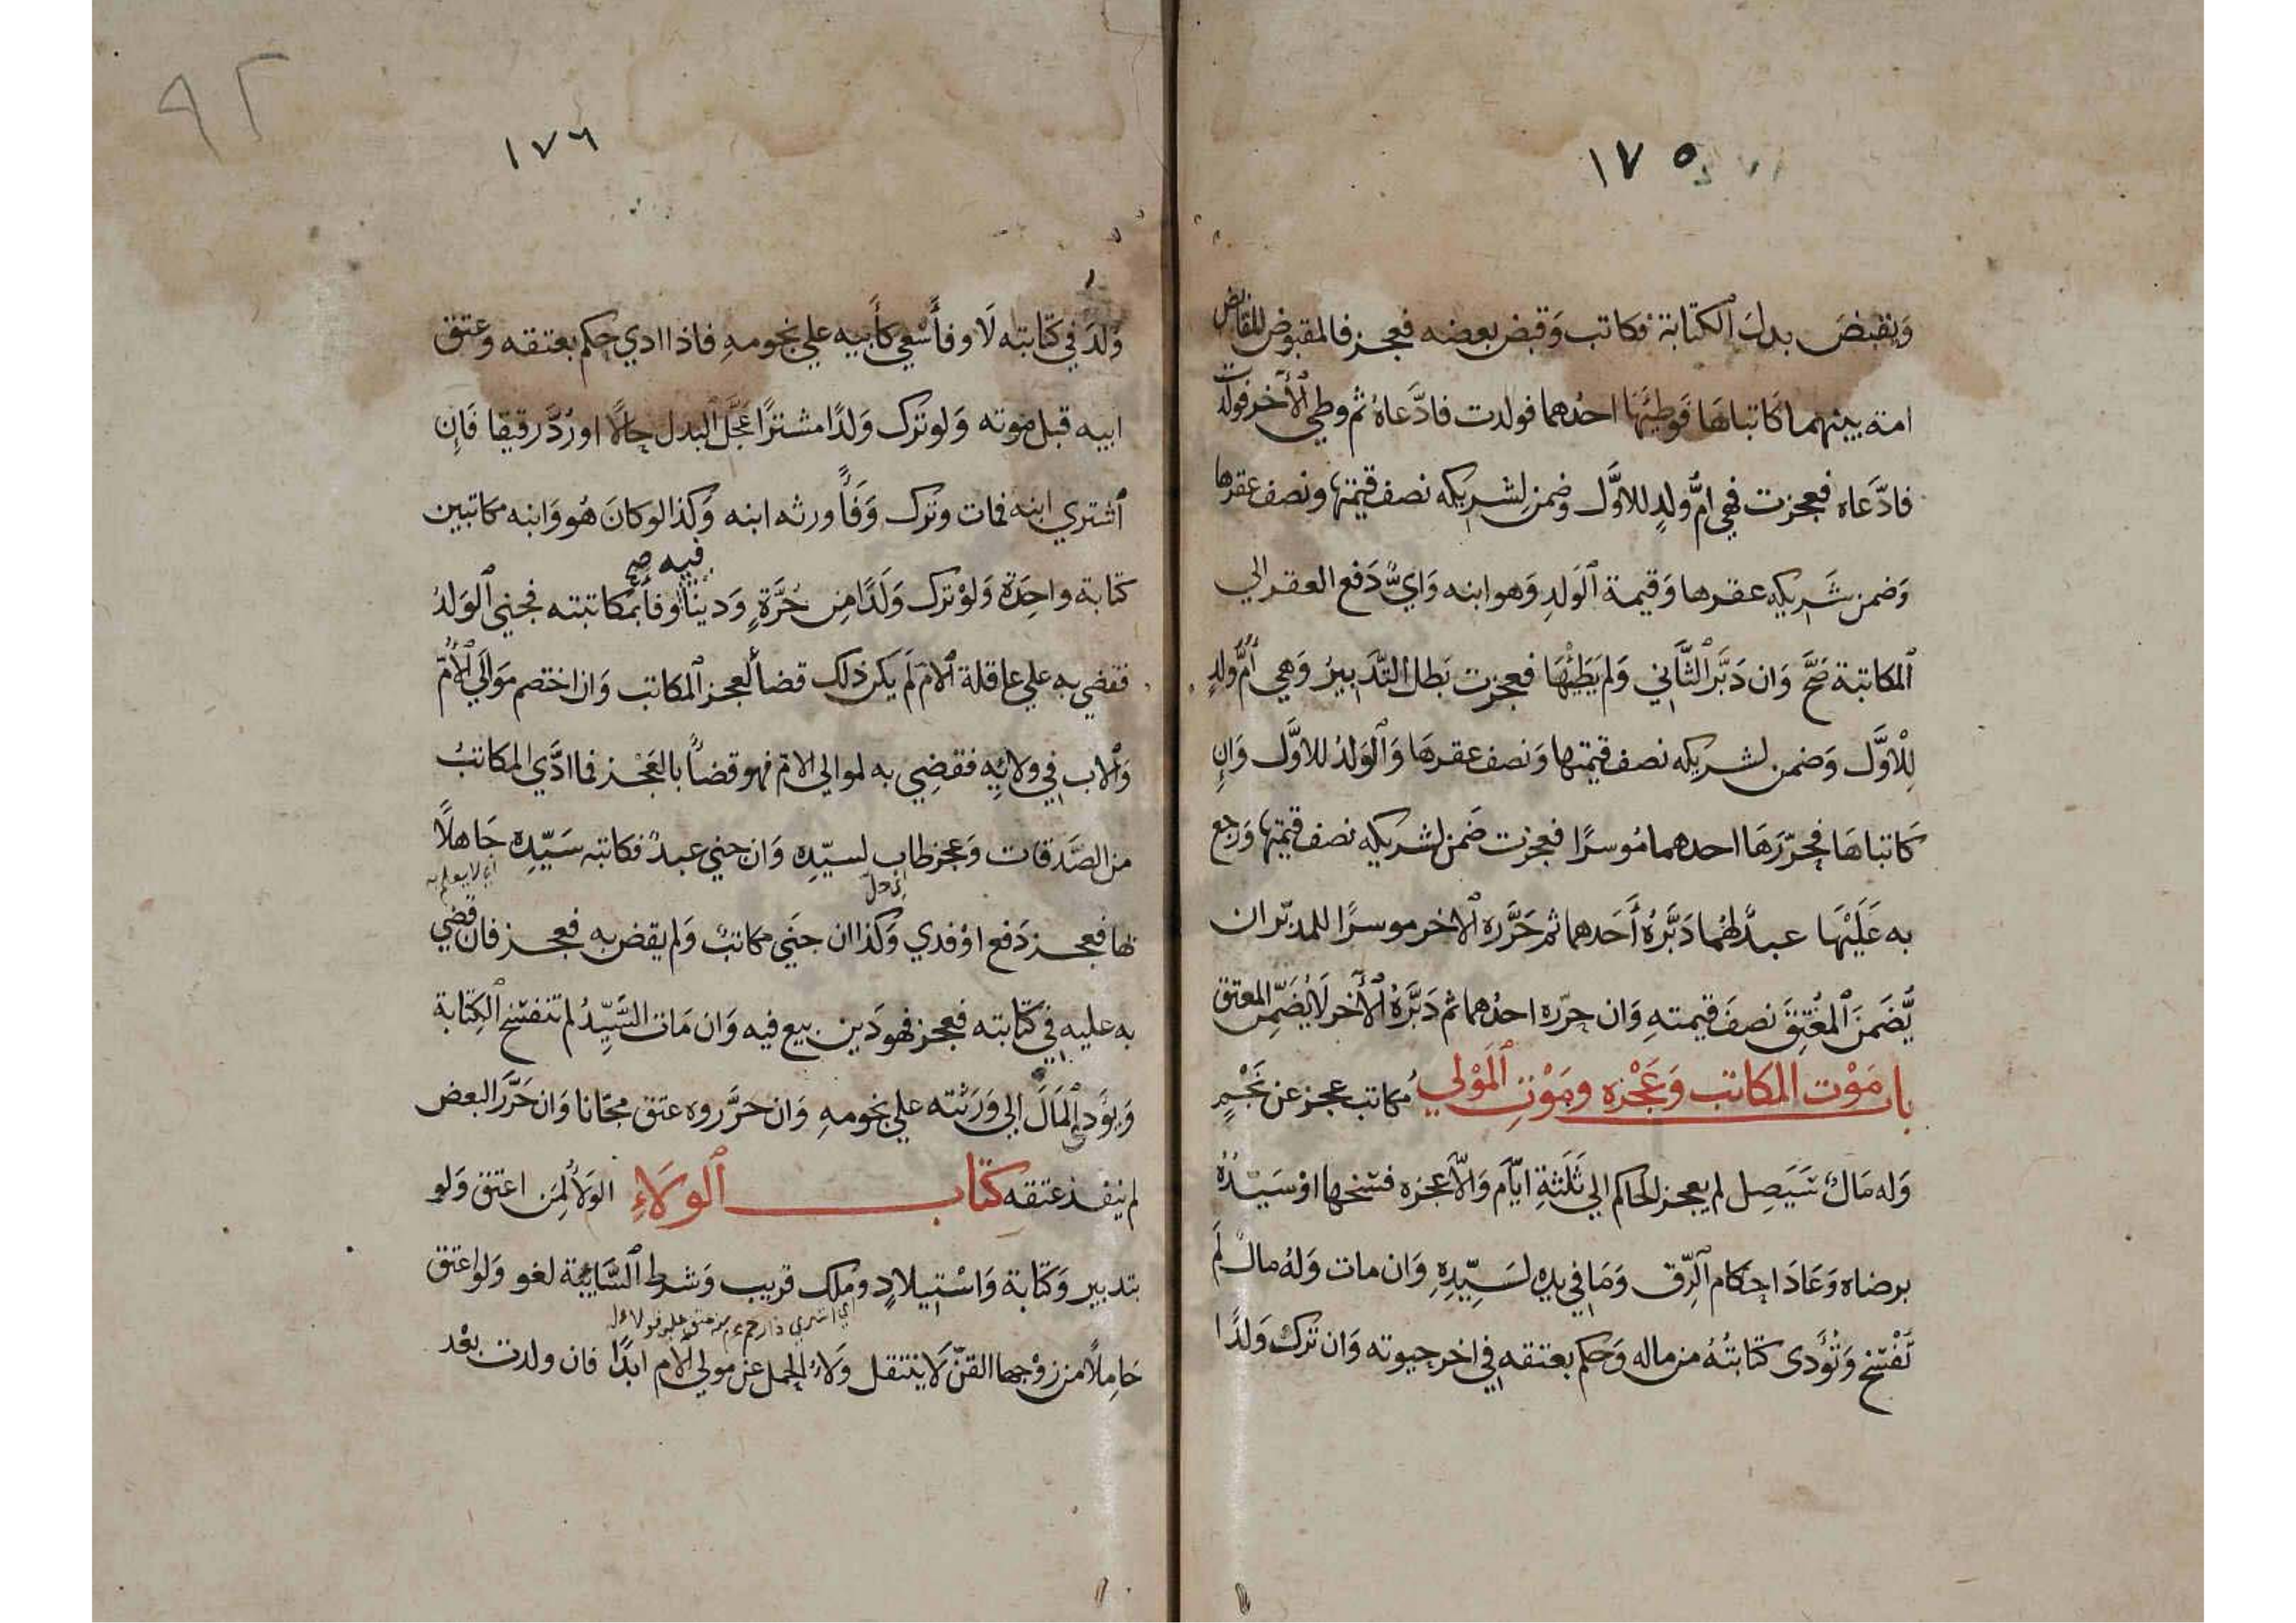 ١٧٥
وَيقبضَ بدلَ ٱلكتابة فكاتب وَقبض بعضه فعجز فالمقبوض للقابض
امة بينهما كَاتباهَا فَوطِئهَا احدُهما فولدت فادَّعاهُ ثم وطي ٱلآخر فولدت
فادّعاه فعجزت فهي امُّ ولدٍ للاوَّل وضمن لِشريكه نصف قيمتها ونصف عقرها
وَضمن شَريكه عقرها وَقيمة ٱلوَلدِ وَهو ابنه وَايٌّ دَفع العقر الي
ٱلمكاتبة صَحَّ وَان دَبَّر ٱلثَّاني وَلم يَطِئْهَا فعجزت بَطل التَّدبيرُ وَهي أُمُّ ولدٍ
لِلْاوَّل وَضمن لشريكه نصف قيمتها وَنصف عقرهَا وَٱلوَلدُ للاوَّل وَإن
كَاتباهَا فحرَّرَهَا احدهما مُوسرًا فعجزت ضَمن لشريكه نصف قيمتها وَرجع
به عَلَيْهَا عبدٌ لهُما دَبَّرَهُ أَحَدهما ثم حَرَّره ٱلاخر موسرًا للمدبّر ان
يُّضَمنَ ٱلمُعْتِقَ نصفَ قيمتهِ وَان حرّره احدُهما ثم دَبَّرَهُ ٱلآخر لَا يُضَمِّن المعتق
باب مَوْت المكاتب وَعَجْزه ومَوْتِ ٱلمَوْلي مُكاتب عجز عن نَجْمٍ
وَله مَالٌ سَيَصِل لم يعجز الحاكم الي ثَلَثةِ ايّام وَالّا عجزه فسخها اوْ سَيّدُهُ
برضاه وَعَادَ احكام ٱلرّق وَمَا في يده لسَيّدِهِ وَان مات وَلهُ مالٌ لَم
تُفْسَخ وَتُؤَدى كتابتُهُ من ماله وَحكم بعتقه في اخر حيوته وَان تركَ وَلدًا
٩٢
١٧٦
وَلدَ في كتابته لَا وفأسْعي كأَبيه علي نجومهِ فاذا ادي حكم بعتقه وعتق
ابيه قبل موته وَلو ترك وَلدًا مشترًا عَجَّل البدل حالًا او رُدَّ رقيقا فَإن
ٱشتري ابنه فمات وترك وَفَأً ورثه ابنه وَكذا لو كانَ هُو وَابنه مكاتبين
فيه صح
كتابة واحِدَة وَلوْ ترك وَلَدًا مِن حُرَّةٍ وَدينًا وفأ بمكاتبته فجني ٱلوَلدُ
فقضي به علي عاقلة ٱلام لَم يكن ذلك قضأ لعجز ٱلمكاتب وَان اختصم مَوَالي ٱلأُمّ
وَالاب في ولائِهِ فقضِي به لموالي الام فهو قضأً بالعَجْز فما ادَّي المكاتبُ
من الصَّدقات وَعجز طاب لسيّدِه وَان جني عبدٌ فكاتبه سَيّدِه جَاهلًا
اي حل
اي لا يعلم به
بها فعجز دَفع اوْ فدي وَكذا ان جَني مكاتبٌ وَلم يقض به فعجز فان قضي
به عليه في كتابته فعجز فهو دَين بيع فيه وَان مَات السَّيّدُ لم تنفسخ ٱلكِتابة
وَيؤدي ٱلمَالَ الي وَرَثته علي نجومهِ وَان حرَّروه عتق مجّانا وَان حَرَّر البعض
لم ينفذ عتقه كتاب ٱلوَلَاءِ الوَلأُ لِمَن اعتق وَلو
بتدبير وَكتابة وَاسْتيلادٍ وملك قريب وَشرط ٱلسَّايبة لغو وَلو اعتق
اي اشتري ذا رحم محرم منه عتق عليه فولاءه له
حَامِلًا من زوْجها القنّ لَا ينتقل وَلَاءُ الحمل عن مولي الام ابدًا فان ولدت بعْد